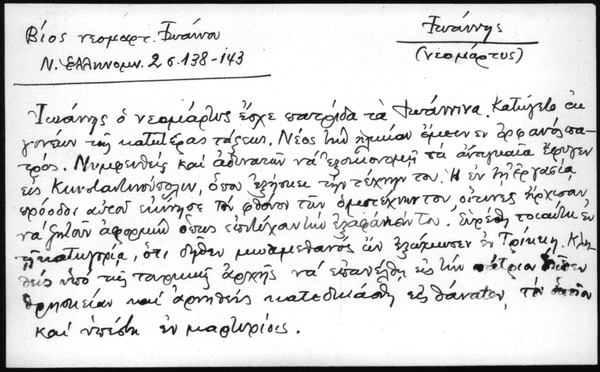 Βίος νεομαρτ. Ἰωάννου
Ν. Ἑλληνομν. 2 σ. 138-143
Ἰωάννης
(νεομάρτυς)
Ἰωάννης ὁ νεομάρτυς ἔσχε πατρίδα τὰ Ἰωάννινα. Κατήγετο ἐκ
γονέων τῆς κατωτέρας τάξεως. Νέος τὴν ἡλικίαν ἔμεινεν ὀρφανὸς πα-
τρός. Νυμφευθεὶς καὶ ἀδυνατῶν νὰ ἐξοικονομῇ τὰ ἀναγκαῖα ἔφυγεν
εἰς Κωνσταντινούπολιν, ὅπου ἐξήσκει τὴν τέχνην του. Ἡ ἐν τῇ ἐργασίᾳ
πρόοδος αὐτοῦ ἐκίνησε τὸν φθόνον τῶν ὁμοτέχνων του οἵτινες ἤρχισαν
νὰ ζητοῦν ἀφορμὴν ὅπως ἐπιτύχουν τὴν ἐξαφάνισίν του. Εὑρέθη τοιαύτη ἐν
τῇ κατηγορίᾳ, ὅτι δῆθεν μωαμεθανὸς ὢν ἐξώμοσεν ἐν Τρίκκῃ. Κλη-
θεὶς ὑπὸ τῆς τουρκικῆς ἀρχῆς νὰ ἐπανέλθῃ εἰς τὴν πάτριον δῆθεν
θρησκείαν καὶ ἀρνηθεὶς κατεδικάσθη εἰς θάνατον, τὸν ὁποῖον
καὶ ὑπέστη ἐν μαρτυρίοις.